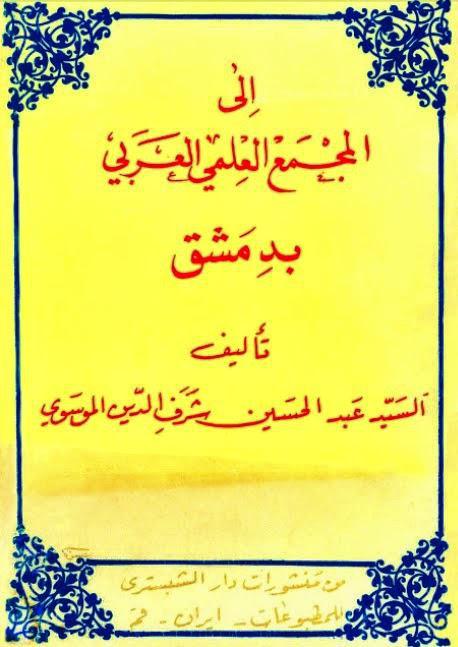 إِلىٰ
المَجْمَع العِلمي العَرَبي
بدِمَشق
تأليف
السَيّد عبد الحسين شَرَف الدّين الموسَوي
من منشورات دار الشبستری
للمطبوعات - ایران - قم